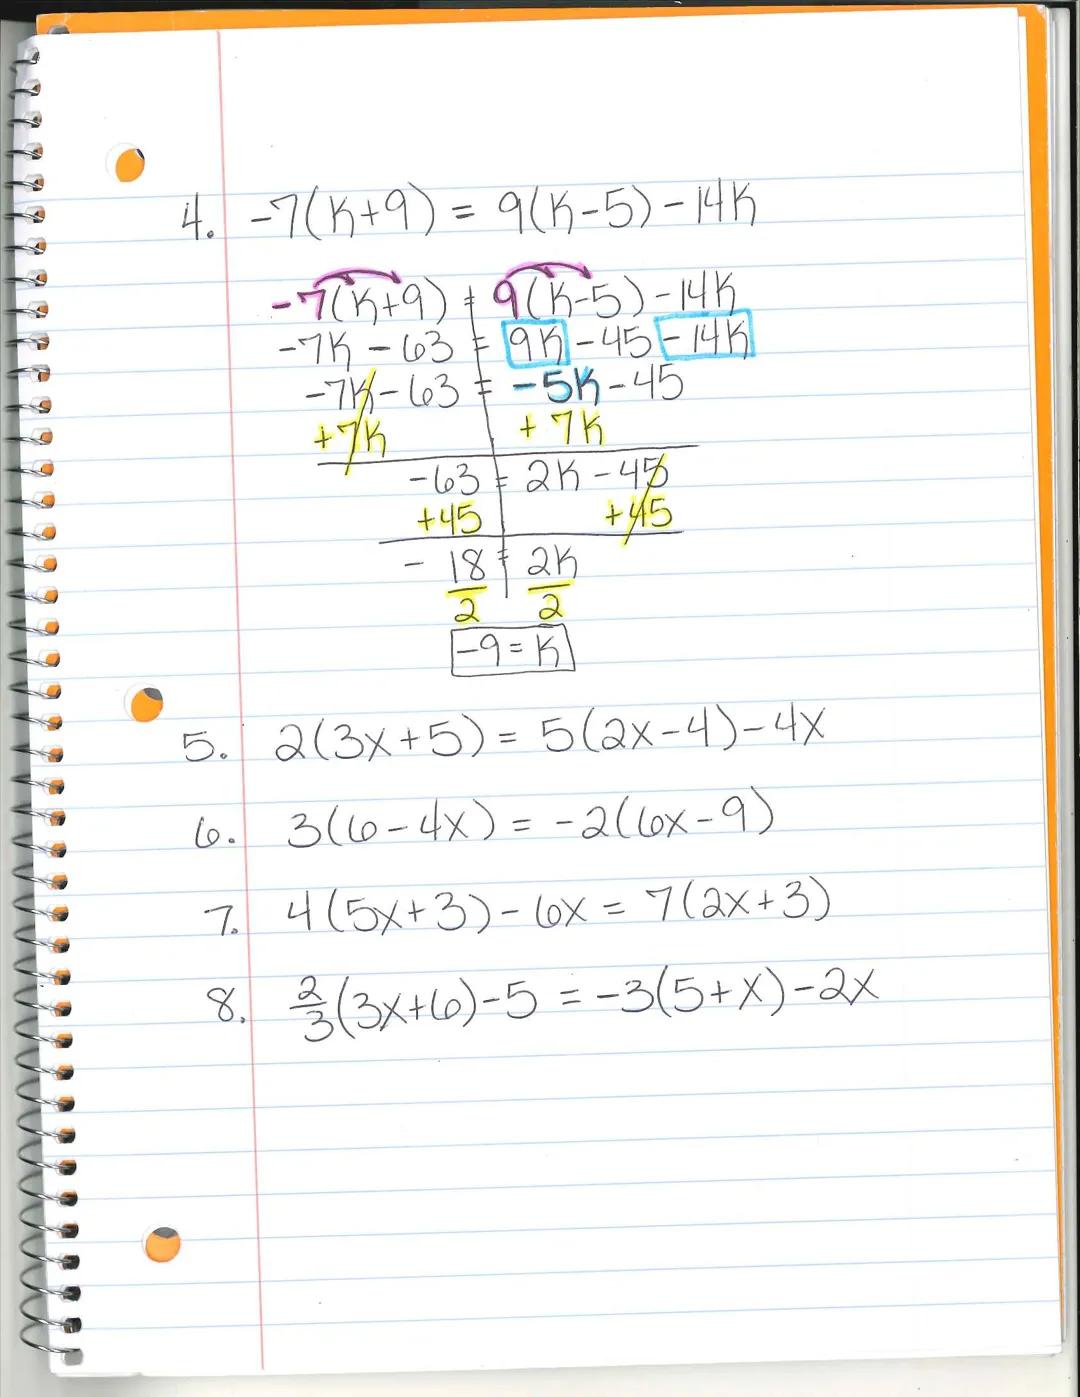 4. -7(K+9) = 9(K-5)-14K
-7(K+9) = 9(K-5)-14K
-7K-63 = 9K-45-14K
-7K-63 = -5K-45
+7K +7K
-63 = 2K-45
+45 +45
-18 = 2K
2 2
-9=K
5. 2(3x+5) = 5(2x-4)-4x
6. 3(6-4x) = -2(6x-9)
7. 4(5x+3)-6x = 7(2x+3)
8. 2/3(3x+6)-5 = -3(5+x)-2x